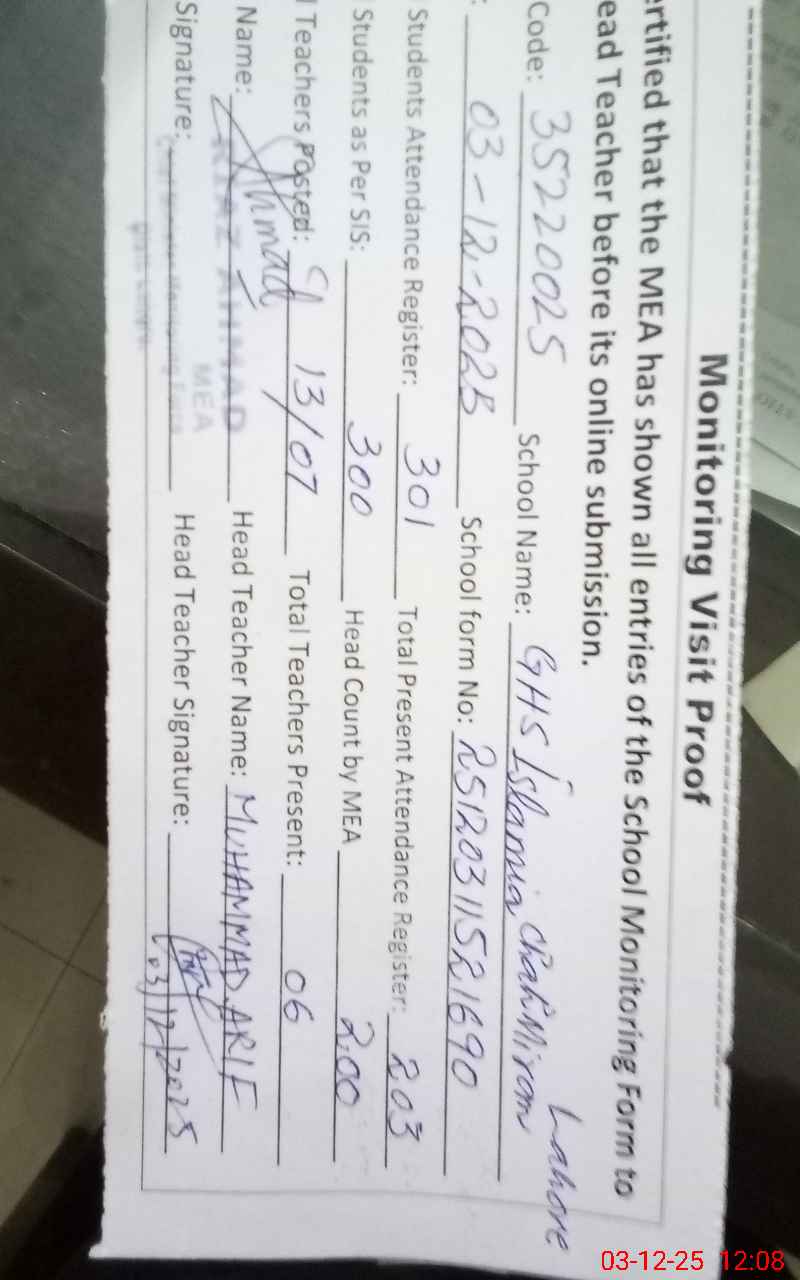 Monitoring Visit Proof
ertified that the MEA has shown all entries of the School Monitoring Form to
ead Teacher before its online submission.
Code: 35220025 School Name: GHS Islamia Chah Miran Lahore
: 03-12-2025 School form No: 2512031521690
Students Attendance Register: 301 Total Present Attendance Register: 203
Students as Per SIS: 300 Head Count by MEA 200
l Teachers Posted: 13/07 Total Teachers Present: 06
Name: Head Teacher Name: MUHAMMAD ARIF
Ahmad
AHMAD
MEA
Signature: Head Teacher Signature:
03/12/2025
03-12-25 12:08